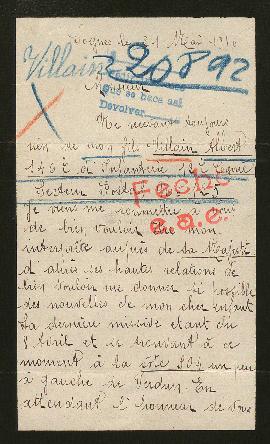 Cognac le 21 Mai 1916
Villain 220892
Monsieur
que se haca asi
Devolver
Ne recevant toujours
rien de mon fils Villain Albert
146e d'Infanterie 12e Cgnie
Secteur Postal No 125
Fecha
e.a.c.
je viens me permettre à vous
de bien vouloir être mon
interprète auprès de Sa Majesté
d'après ses hautes relations de
bien vouloir me donner si possible
des nouvelles de mon cher enfant
Sa dernière missive étant du
8 Avril et se trouvant à ce
moment à la côte 304 un peu
à gauche de Verdun En
attendant l'honneur de vous